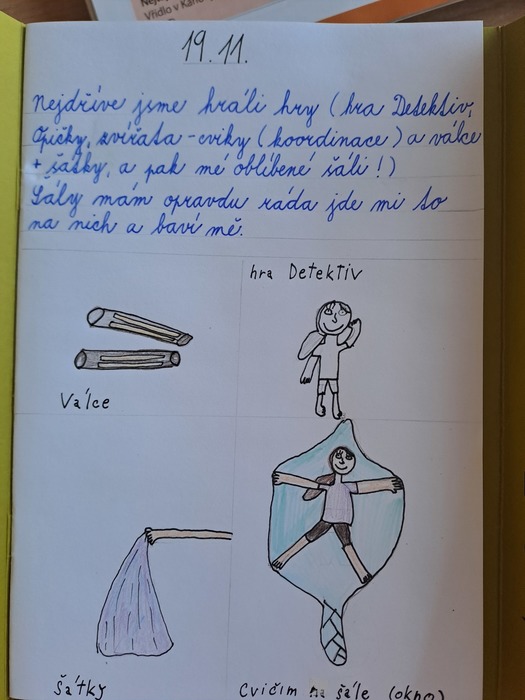 Vřídlo v Karlo
19.11.
Nejdříve jsme hráli hry (hra Detektiv,
Opičky, zvířata - cviky (koordinace) a válce
+ šátky, a pak mé oblíbené šáli!)
Šály mám opravdu ráda jde mi to
na nich a baví mě.
hra Detektiv
Válce
Šátky
Cvičím na šále (okno)